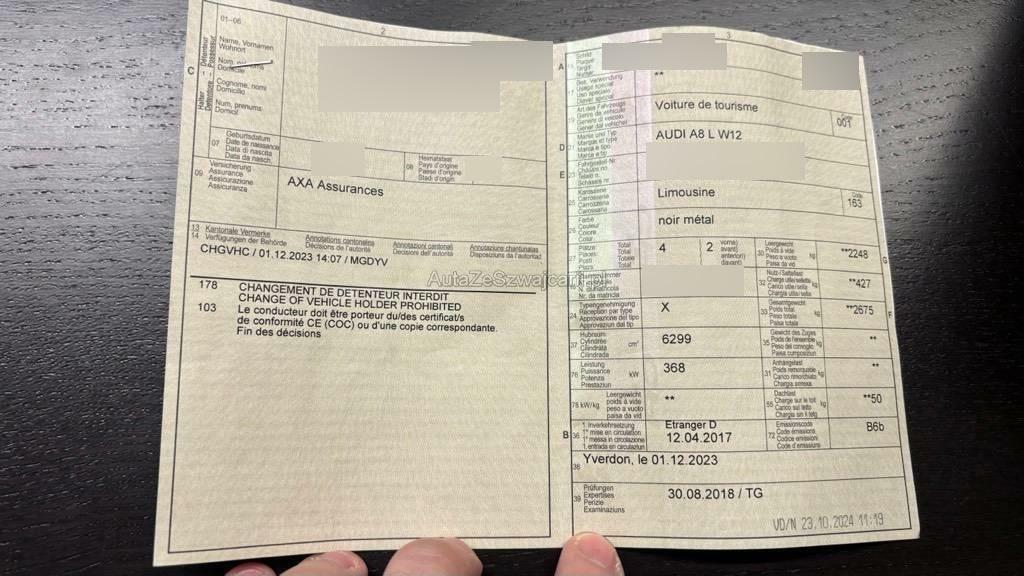 01-06
2
3
Détenteur
Possessur
Halter
Detentore
C
Name, Vornamen
Wohnort
Nom, prénoms
Domicile
Cognome, nomi
Domicilio
Num, prenums
Domicil
07
Geburtsdatum
Date de naissance
Data di nascita
Data da nasch.
08
Heimatstaat
Pays d'origine
Paese d'origine
Stadi d'orign
09
Versicherung
Assurance
Assicurazione
Assicuranza
AXA Assurances
13
14
Kantonale Vermerke
Verfügungen der Behörde
Annotations cantonales
Décisions de l'autorité
Annotazioni cantonali
Decisioni dell'autorità
Annotaziuns chantunalas
Disposiziuns da l'autoritad
CHGVHC / 01.12.2023 14:07 / MGDYV
178 CHANGEMENT DE DETENTEUR INTERDIT
CHANGE OF VEHICLE HOLDER PROHIBITED
103 Le conducteur doit être porteur du/des certificat/s
de conformité CE (COC) ou d'une copie correspondante.
Fin des décisions
A
Schild
Plaque
Targa
Numer
17
Bes. Verwendung
Usage spécial
Uso speciale
Diever spezial
**
19
Art des Fahrzeugs
Genre de véhicule
Genere di veicolo
Gener dal vehichel
Voiture de tourisme
001
D
21
Marke und Typ
Marque et type
Marca e tipo
Marca e tip
AUDI A8 L W12
E
23
Fahrgestell-Nr.
Châssis no
Telaio n.
Schassis nr.
25
Karosserie
Carrosserie
Carrozzeria
Carossaria
Limousine
Code
163
26
Farbe
Couleur
Colore
Colur
noir métal
27
Plätze
Places
Posti
Plazs
Total
Total
Totale
Total
4
2
vorne)
avant)
anteriori)
davant)
30
Leergewicht
Poids à vide
Peso a vuoto
Paisa da vid
kg
**2248
G
Nr. da matricla
32
Nutz-/Sattellast
Charge utile/sellette
Carico utile/sella
Chargia utila/sella
kg
**427
24
Typengenehmigung
Réception par type
Approvazione del tipo
Approvaziun dal tip
X
33
Gesamtgewicht
Poids total
Peso totale
Paisa totala
kg
**2675
F
37
Hubraum
Cylindrée
Cilindrata
Cilindrada
cm³
6299
35
Gewicht des Zuges
Poids de l'ensemble
Peso del convoglio
Paisa cumposiziun
kg
**
76
Leistung
Puissance
Potenza
Prestaziun
kW
368
31
Anhängelast
Poids remorquable
Carico rimorchiato
Chargia annexa
kg
**
78 kW/kg
Leergewicht
poids à vide
peso a vuoto
paisa da vid
**
55
Dachlast
Charge sur le toit
Carico sul tetto
Chargia sin il tetg
kg
**50
B
36
1. Inverkehrsetzung
1re mise en circulation
1a messa in circolazione
1. entrada en circulaziun
Etranger D
12.04.2017
72
Emissionscode
Code émissions
Codice emissioni
Code d'emissiuns
B6b
38
Yverdon, le 01.12.2023
39
Prüfungen
Expertises
Perizie
Examinaziuns
30.08.2018 / TG
VD/N 23.10.2024 11:19